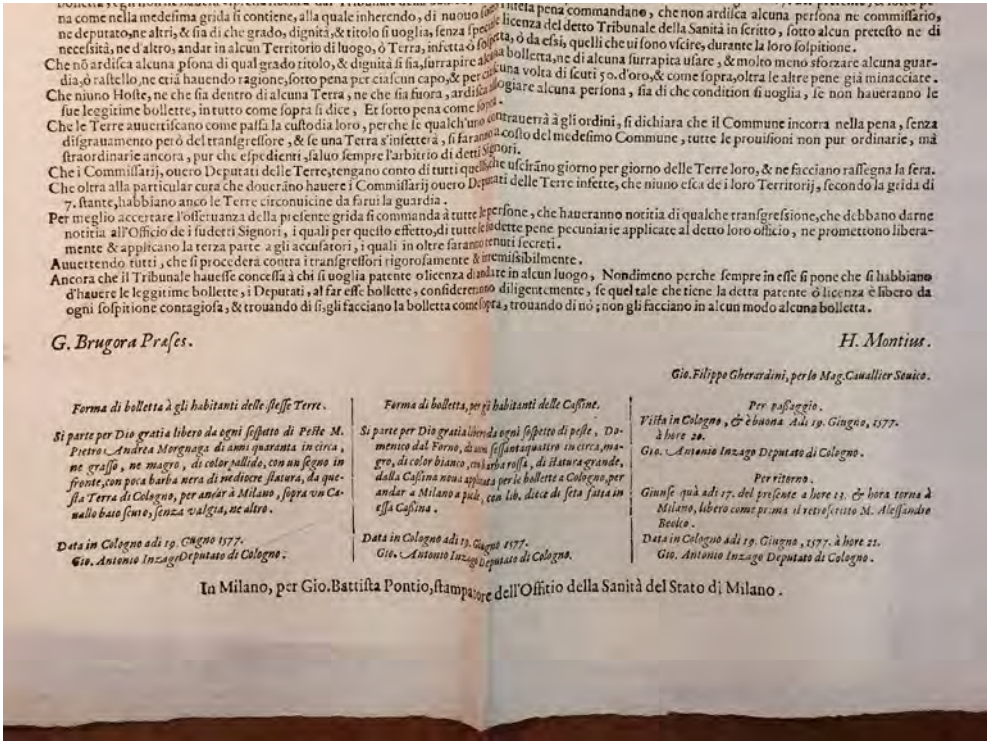 na come nella medesima grida si contiene, alla quale inherendo, di nuouo pena commandano, che non ardisca alcuna persona ne commissario,
ne deputato, ne altri, & sia di che grado, dignità, & titolo si uoglia, senza licenza del detto Tribunale della Sanità in scritto, sotto alcun pretesto ne di
necessità, ne d'altro, andar in alcun Territorio di luogo, ò Terra, infetta ò ò da essi, quelli che ui sono uscire, durante la loro sospitione.
Che nō ardisca alcuna psona di qual grado titolo, & dignità si sia, surrapire alcuna bolletta, ne di alcuna surrapita usare, & molto meno sforzare alcuna guar-
dia, ò rastello, ne etiā hauendo ragione, sotto pena per ciascun capo, & per ciascuna volta di scuti 50. d'oro, & come sopra, oltre le altre pene già minacciate.
Che niuno Hoste, ne che sia dentro di alcuna Terra, ne che sia fuora, ardisca allogiare alcuna persona, sia di che condition si uoglia, se non haueranno le
sue legitime bollette, in tutto come sopra si dice, Et sotto pena come sopra.
Che le Terre auuertiscano come passa la custodia loro, perche se qualch'uno contrauerrà à gli ordini, si dichiara che il Commune incorra nella pena, senza
disgrauamento però del transgressore, & se una Terra s'infetterà, si faranno a costo del medesimo Commune, tutte le prouisioni non pur ordinarie, mà
straordinarie ancora, pur che espedienti, saluo sempre l'arbitrio di detti Signori.
Che i Commissarij, ouero Deputati delle Terre, tengano conto di tutti quelli che uscirāno giorno per giorno delle Terre loro, & ne facciano rassegna la sera.
Che oltra alla particular cura che doueràno hauere i Commissarij ouero Deputati delle Terre infette, che niuno esca de i loro Territorij, secondo la grida di
7. stante, habbiano anco le Terre circonuicine da farui la guardia.
Per meglio accertare l'osseruanza della presente grida si commanda à tutte le persone, che haueranno notitia di qualche transgressione, che debbano darne
notitia all'Officio de i sudetti Signori, i quali per questo effetto, di tutte le sudette pene pecuniarie applicate al detto loro officio, ne promettono libera-
mente & applicano la terza parte a gli accusatori, i quali in oltre saranno tenuti secreti.
Auuertendo tutti, che si procederà contra i transgressori rigorosamente & irremissibilmente.
Ancora che il Tribunale hauesse concessa à chi si uoglia patente o licenza di andare in alcun luogo, Nondimeno perche sempre in esse si pone che si habbiano
d'hauere le leggitime bollette, i Deputati, al far esse bollette, considereranno diligentemente, se quel tale che tiene la detta patente ò licenza è libero da
ogni sospitione contagiosa, & trouando di sì, gli facciano la bolletta come sopra, trouando di nò; non gli facciano in alcun modo alcuna bolletta.
G. Brugora Præses.
H. Montius.
Gio. Filippo Gherardini, per lo Mag. Cauallier Souico.
Forma di bolletta à gli habitanti delle stesse Terre.
Si parte per Dio gratia libero da ogni sospetto di Peste M.
Pietro Andrea Morgnaga di anni quaranta in circa,
ne grasso, ne magro, di color pallido, con un segno in
fronte, con poca barba nera di mediocre statura, da que-
sta Terra di Cologno, per andar à Milano, sopra vn Ca-
uallo baio scuro, senza valgia, ne altro.
Data in Cologno adi 19. Giugno 1577.
Gio. Antonio Inzago Deputato di Cologno.
Forma di bolletta, per gi habitanti delle Cassine.
Si parte per Dio gratia libero da ogni sospetto di peste, Do-
menico dal Forno, di anni sessantaquattro in circa, ma-
gro, di color bianco, con barba rossa, di statura grande,
dalla Cassina noua applicata per le bollette a Cologno, per
andar a Milano a pide, con lib. diece di seta fatta in
essa Cassina.
Data in Cologno adi 19. Giugno 1577.
Gio. Antonio Inzago Deputato di Cologno.
Per passaggio.
Vista in Cologno, & è buona Adi 19. Giugno, 1577.
à hore 20.
Gio. Antonio Inzago Deputato di Cologno.
Per ritorno.
Giunse quà adi 17. del presente a hore 13. & hora torna à
Milano, libero come prima il retroscritto M. Alessandro
Beolco.
Data in Cologno adi 19. Giugno, 1577. à hore 21.
Gio. Antonio Inzago Deputato di Cologno.
In Milano, per Gio. Battista Pontio, stampatore dell'Offitio della Sanità del Stato di Milano.